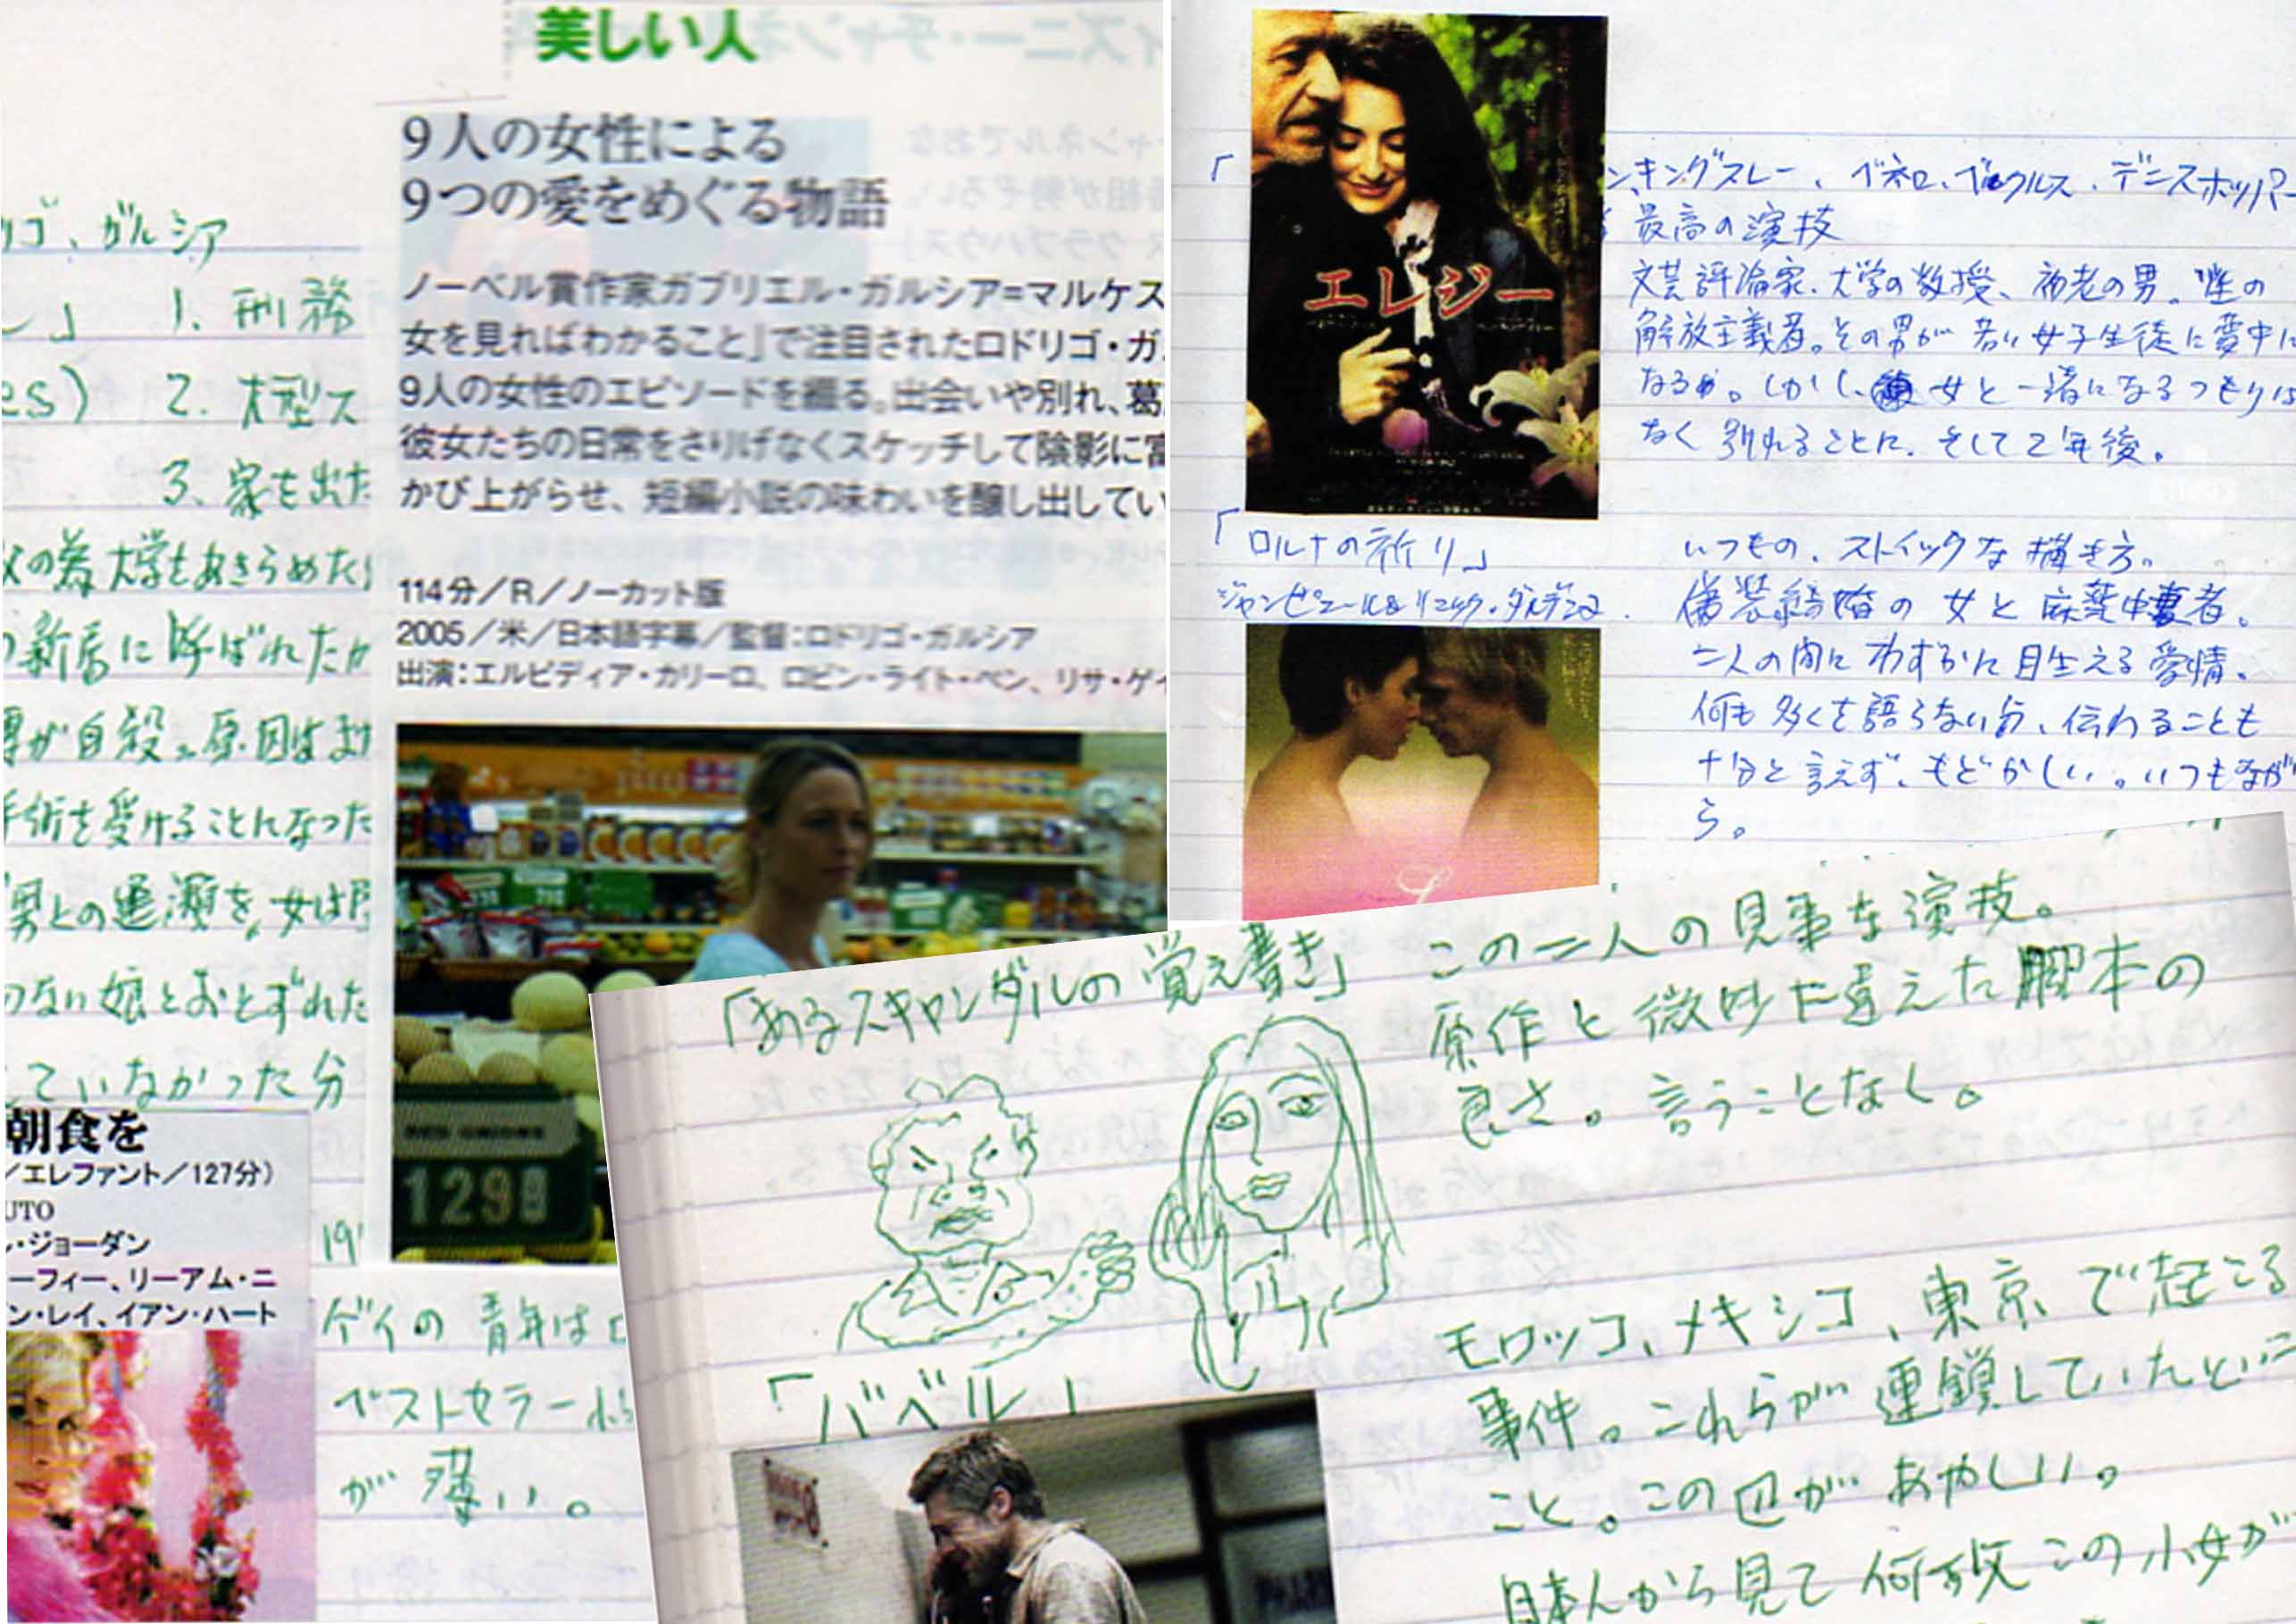 美しい人
9人の女性による
9つの愛をめぐる物語
ノーベル賞作家ガブリエル・ガルシア=マルケス
女を見ればわかること」で注目されたロドリゴ・ガ
9人の女性のエピソードを綴る。出会いや別れ、葛
彼女たちの日常をさりげなくスケッチして陰影に富
かび上がらせ、短編小説の味わいを醸し出してい
114分／R／ノーカット版
2005／米／日本語字幕／監督：ロドリゴ・ガルシア
出演：エルピディア・カリーロ、ロビン・ライト・ペン、リサ・ゲイ
1298
ゴ、ガルシア
し」 1. 刑務
es) 2. 大型ス
3. 家を出た
父の為大学もあきらめた
新居に呼ばれたが
男が自殺。原因はま
手術を受けることになった
男との逢瀬を、女は
ない娘とおとずれた
していなかった分
朝食を
／エレファント／127分）
UTO
ル・ジョーダン
ーフィー、リーアム・ニ
ン・レイ、イアン・ハート
19
ゲイの青年は
ベストセラー小
が薄い。
エレジー
「
ン、キングスレー、ペネロ、デニスホッパ
最高の演技
文芸評論家、大学の教授、初老の男。性の
解放主義者。その男が若い女子生徒に夢中に
なるが。しかし、女と一緒になるつもりは
なく別れることに、そして2年後。
「ロルナの祈り」
ジャンピエール&リュック・ダルデンヌ
いつもの、ストイックな描き方。
偽装結婚の女と麻薬中毒者。
二人の間にわずかに目生える愛情。
何も多くを語らない分、伝わることも
十分と言えず、もどかしい。いつもなが
ら。
「あるスキャンダルの覚え書き」
この二人の見事な演技。
原作と微妙に違えた脚本の
良さ。言うことなし。
「バベル」
モロッコ、メキシコ、東京で起こる
事件。これらが連鎖していたという
こと。この辺があやしい。
日本人から見て何故この少女が